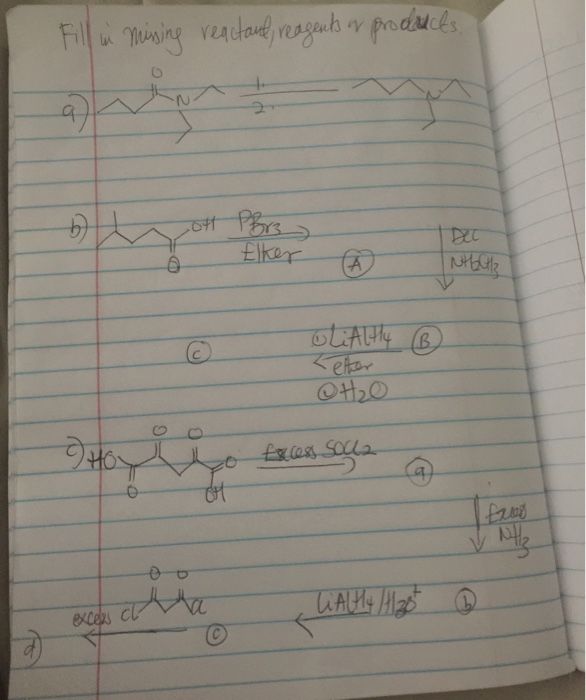 Fill in missing reactant, reagents or products.
a) O N 1. 2.
b) OH O PBr3 Ether A DCC NH2CH3
C ① LiAlH4 ether ② H2O B
c) HO O O O O OH Excess SOCl2 a
Excess NH3
d) excess Cl O O Cl c LiAlH4/H3O+ b